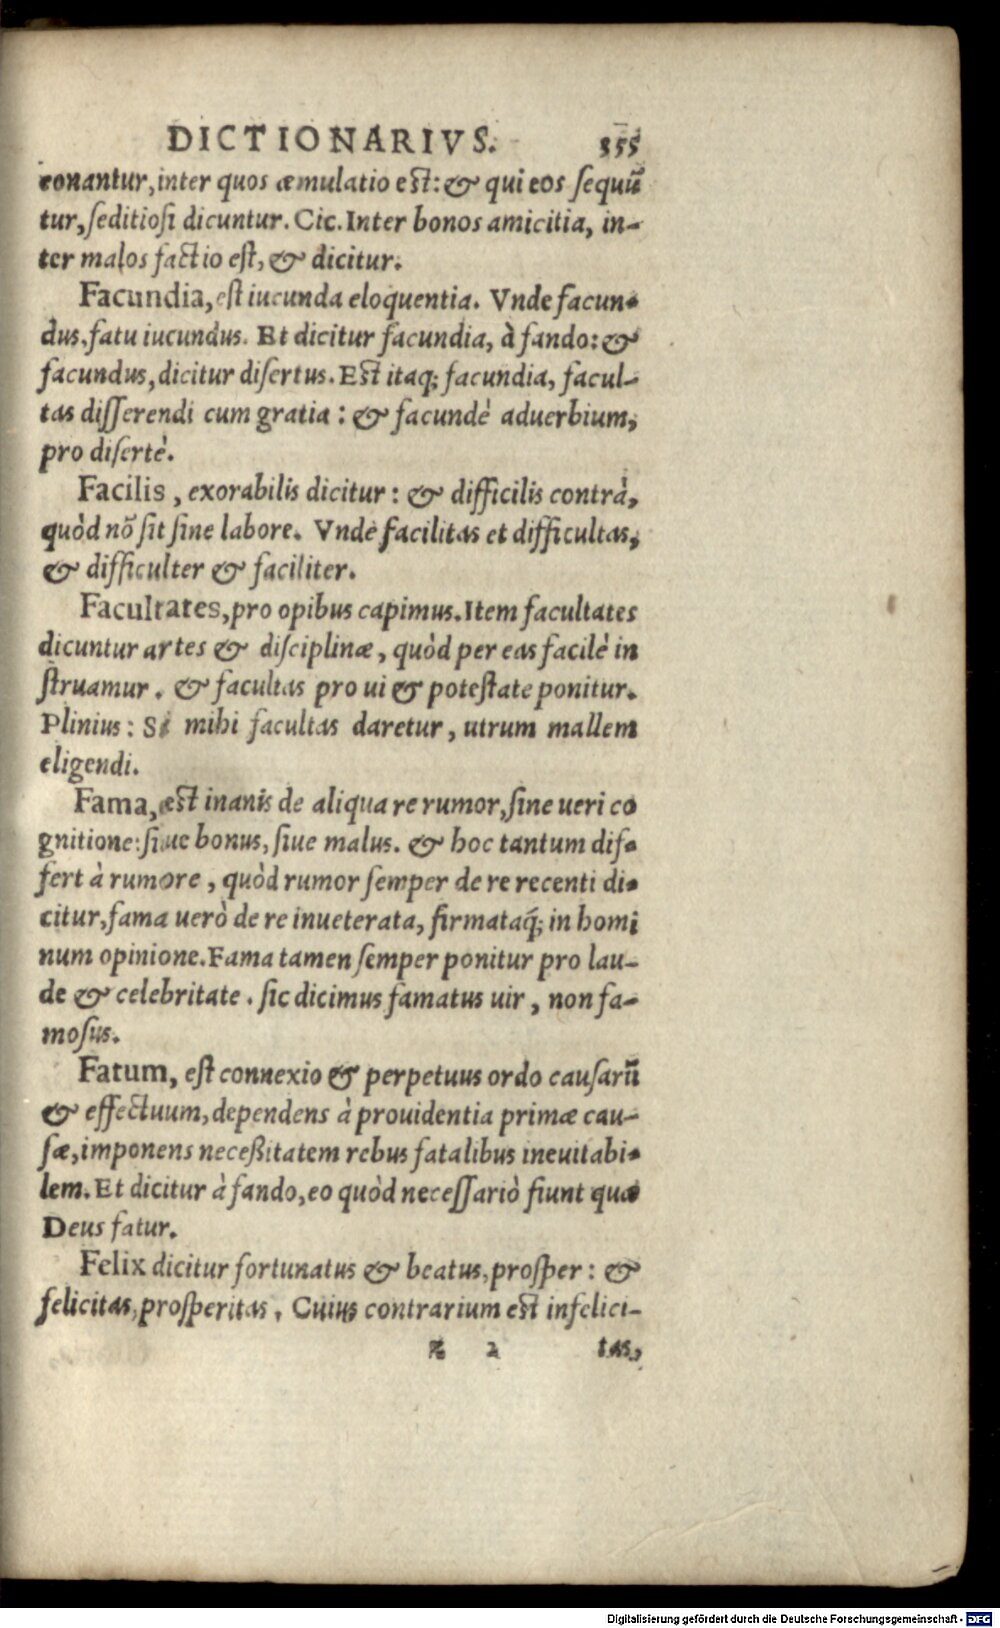 DICTIONARIVS. 355
conantur, inter quos æmulatio est: & qui eos sequũ
tur, seditiosi dicuntur. Cic. Inter bonos amicitia, in-
ter malos factio est, & dicitur.
Facundia, est iucunda eloquentia. Vnde facun-
dus, fatu iucundus. Et dicitur facundia, à fando: &
facundus, dicitur disertus. Est itaq; facundia, facul-
tas disserendi cum gratia: & facundè aduerbium,
pro disertè.
Facilis, exorabilis dicitur: & difficilis contrà,
quòd nõ sit sine labore. Vnde facilitas et difficultas,
& difficulter & faciliter.
Facultates, pro opibus capimus. Item facultates
dicuntur artes & disciplinæ, quòd per eas facilè in
struamur. & facultas pro ui & potestate ponitur.
Plinius: Si mihi facultas daretur, utrum mallem
eligendi.
Fama, est inanis de aliqua re rumor, sine ueri co
gnitione: siue bonus, siue malus. & hoc tantum dif-
fert à rumore, quòd rumor semper de re recenti di-
citur, fama uerò de re inueterata, firmataq́; in homi
num opinione. Fama tamen semper ponitur pro lau-
de & celebritate. sic dicimus famatus uir, non fa-
mosus.
Fatum, est connexio & perpetuus ordo causarũ
& effectuum, dependens à prouidentia primæ cau-
sæ, imponens neceßitatem rebus fatalibus ineuitabi-
lem. Et dicitur à fando, eo quòd necessariò fiunt quæ
Deus fatur.
Felix dicitur fortunatus & beatus, prosper: &
felicitas, prosperitas. Cuius contrarium est infelici-
z 2 tas,
Digitalisierung gefördert durch die Deutsche Forschungsgemeinschaft - DFG